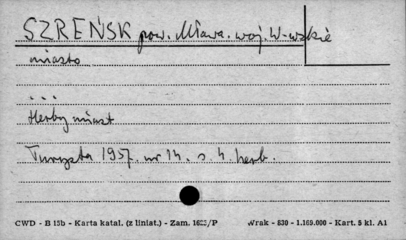 SZREŃSK pow. Mława. woj. W-wskie
miasto
...
Herby miast
Turysta 1957. nr 14. s. 4. herb.
CWD - B 15b - Karta katal. (z liniat.) - Zam. 1622/P Wrak - 830 - 1.169.000 - Kart. 5 kl. A1